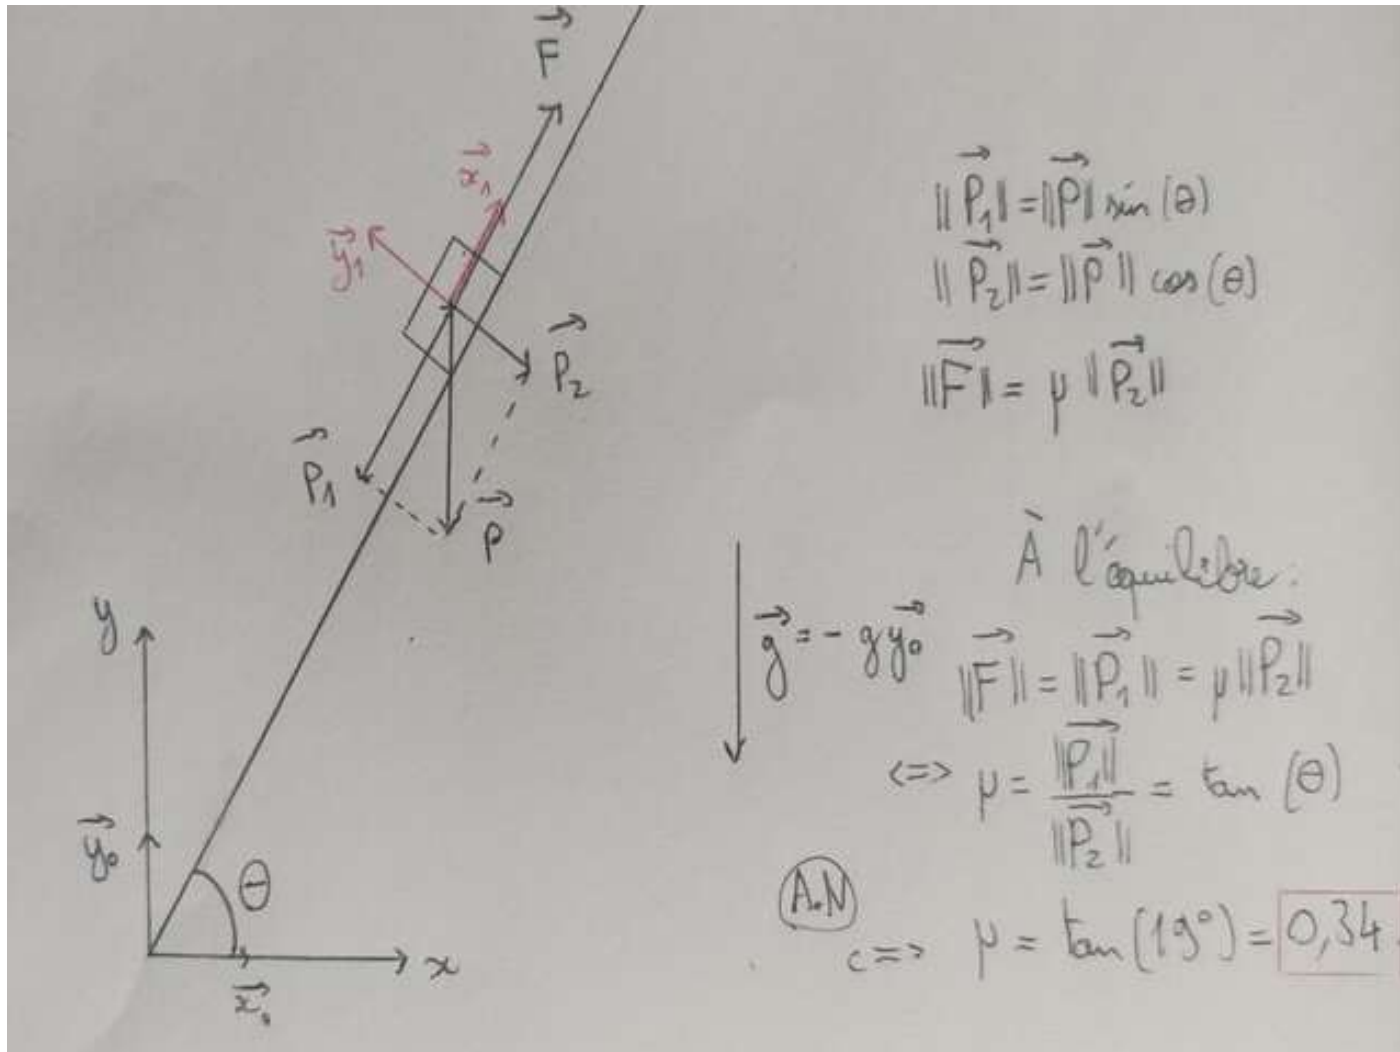 F⃗
x⃗₁
y⃗₁
P⃗₂
P⃗₁
P⃗
y
y⃗₀
θ
x
x⃗₀
‖P⃗₁‖ = ‖P⃗‖ sin (θ)
‖P⃗₂‖ = ‖P⃗‖ cos (θ)
‖F⃗‖ = μ ‖P⃗₂‖
g⃗ = - g y⃗₀
À l'équilibre :
‖F⃗‖ = ‖P⃗₁‖ = μ ‖P⃗₂‖
<=> μ = ‖P⃗₁‖ / ‖P⃗₂‖ = tan (θ)
A.N
<=> μ = tan (19°) = 0,34